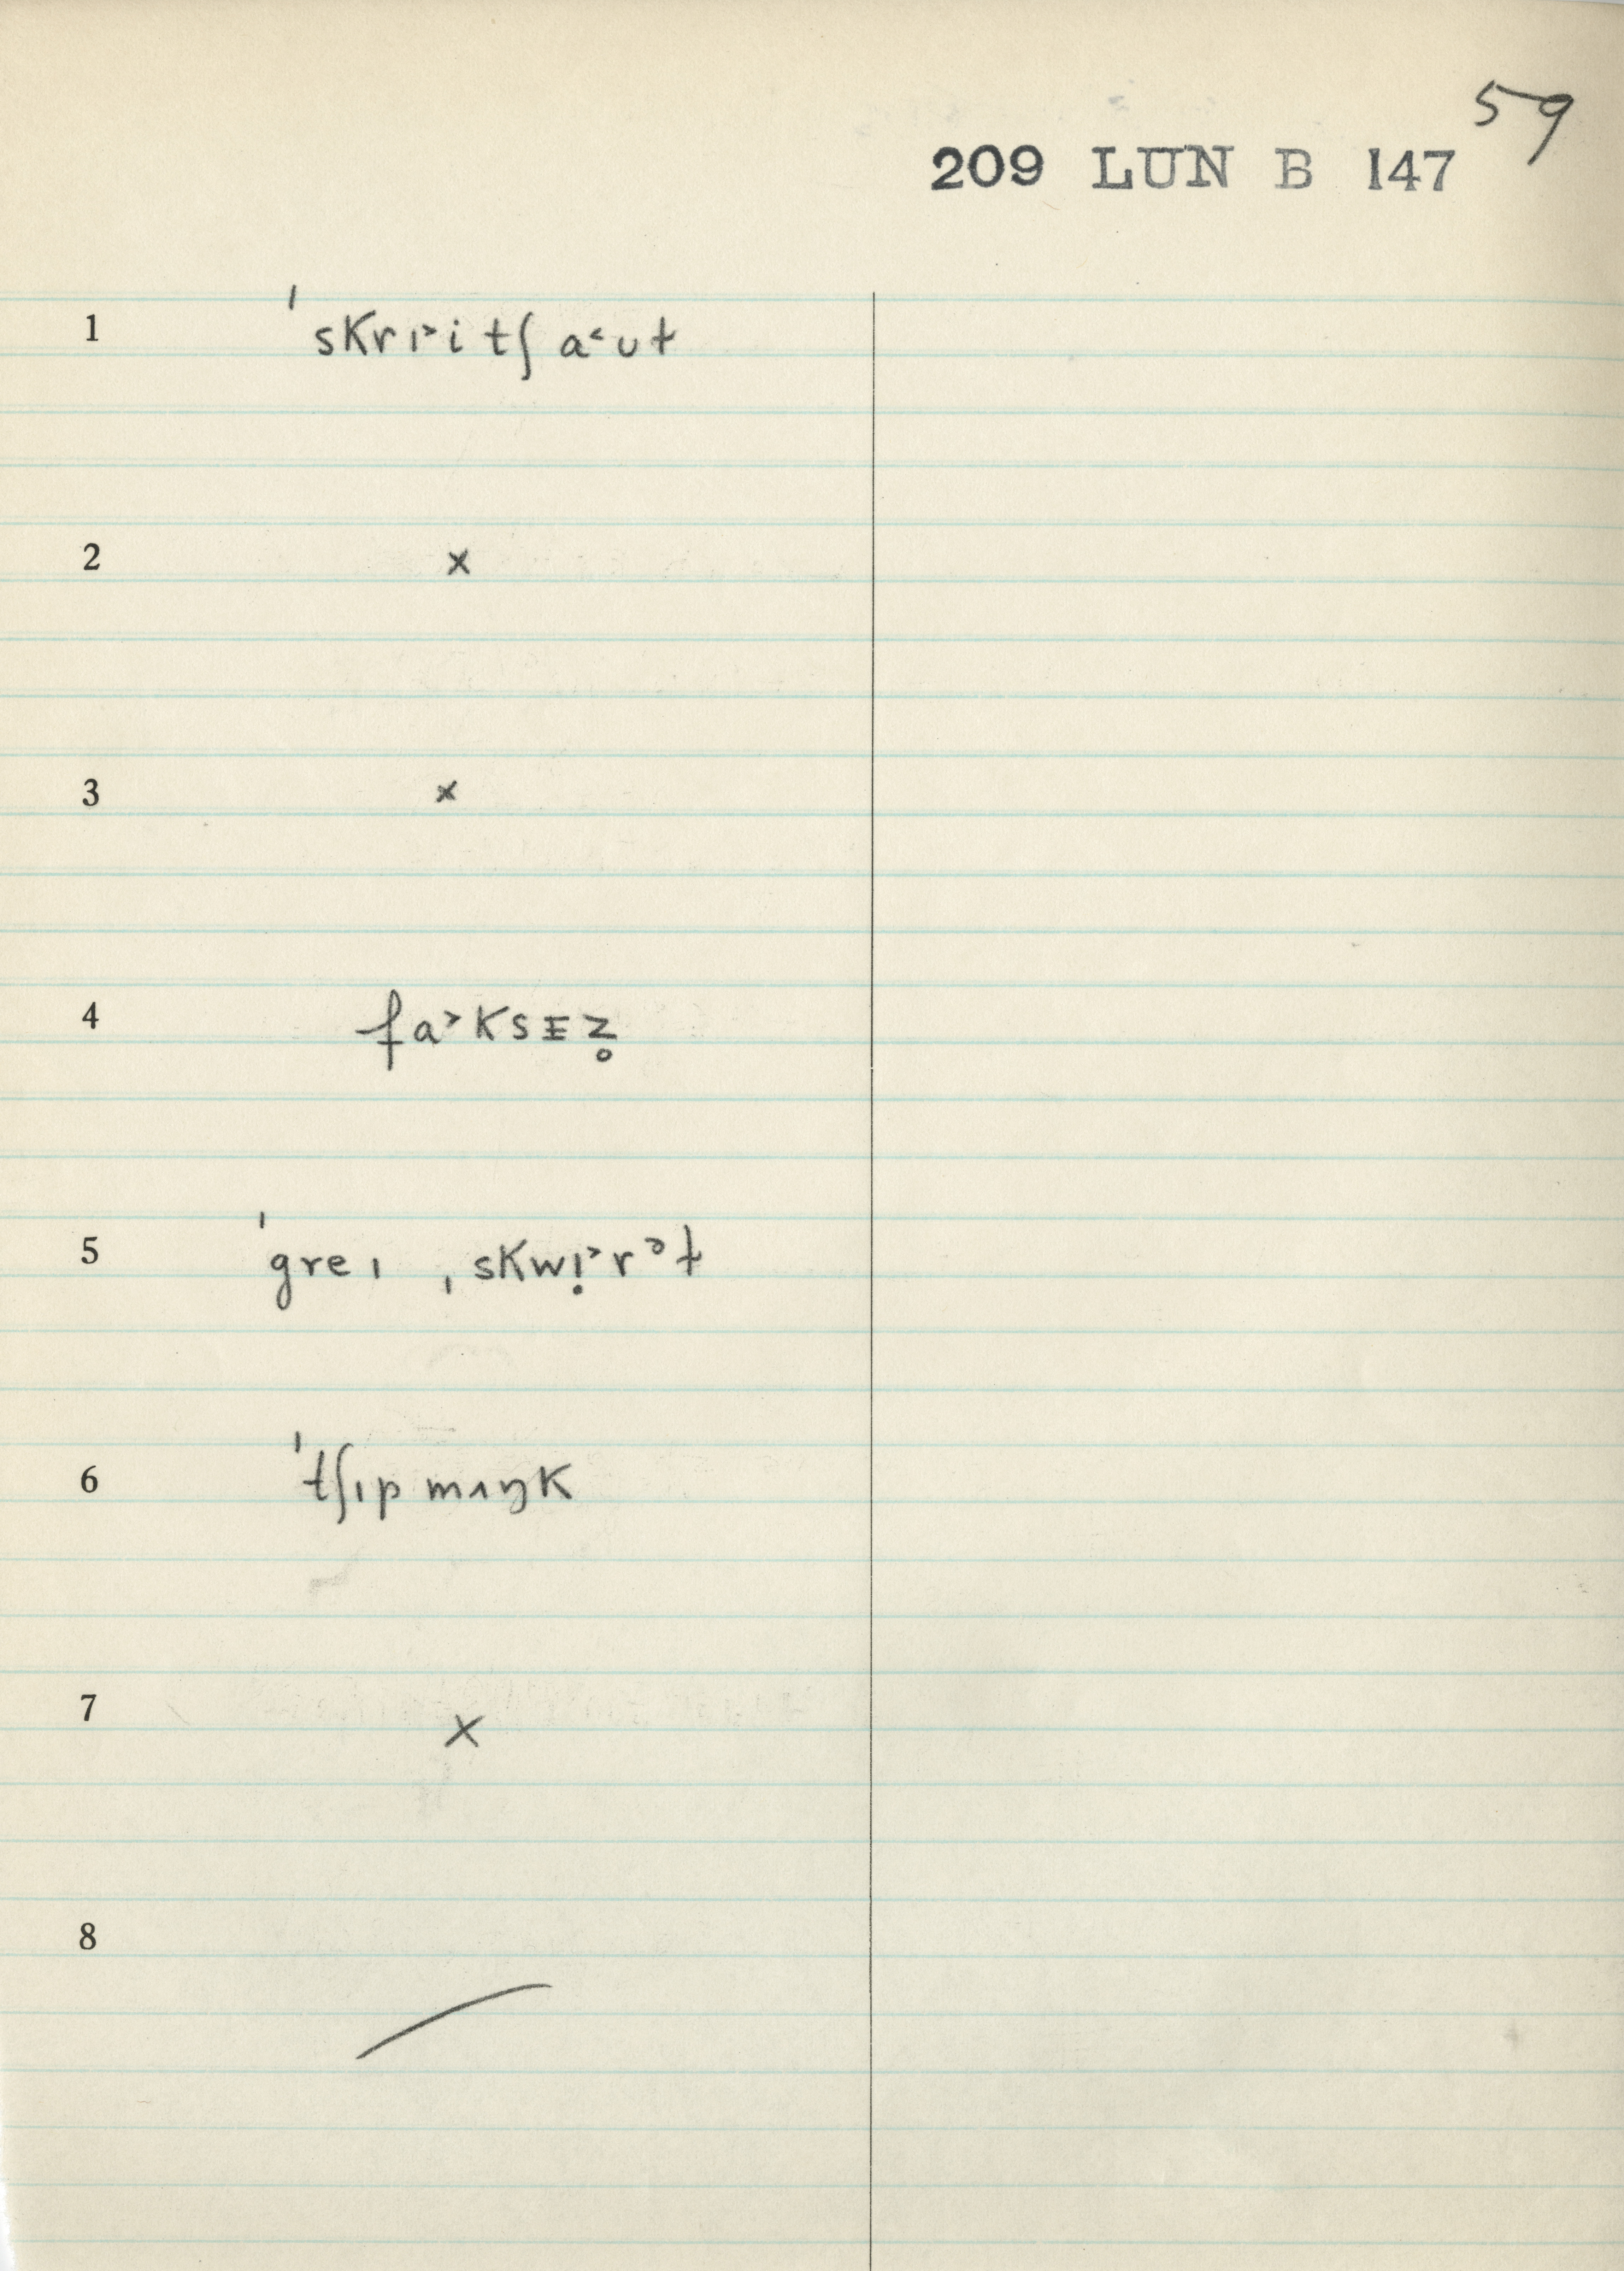 59
209 LUN B 147
1 ˈskrɪ˃itʃ a˂ʊt
2 ×
3 ×
4 fa˃ksɪz̥
5 ˈgreɪ ˌskwɪ̣˃rᵊɫ
6 ˈtʃɪpmʌŋk
7 ×
8